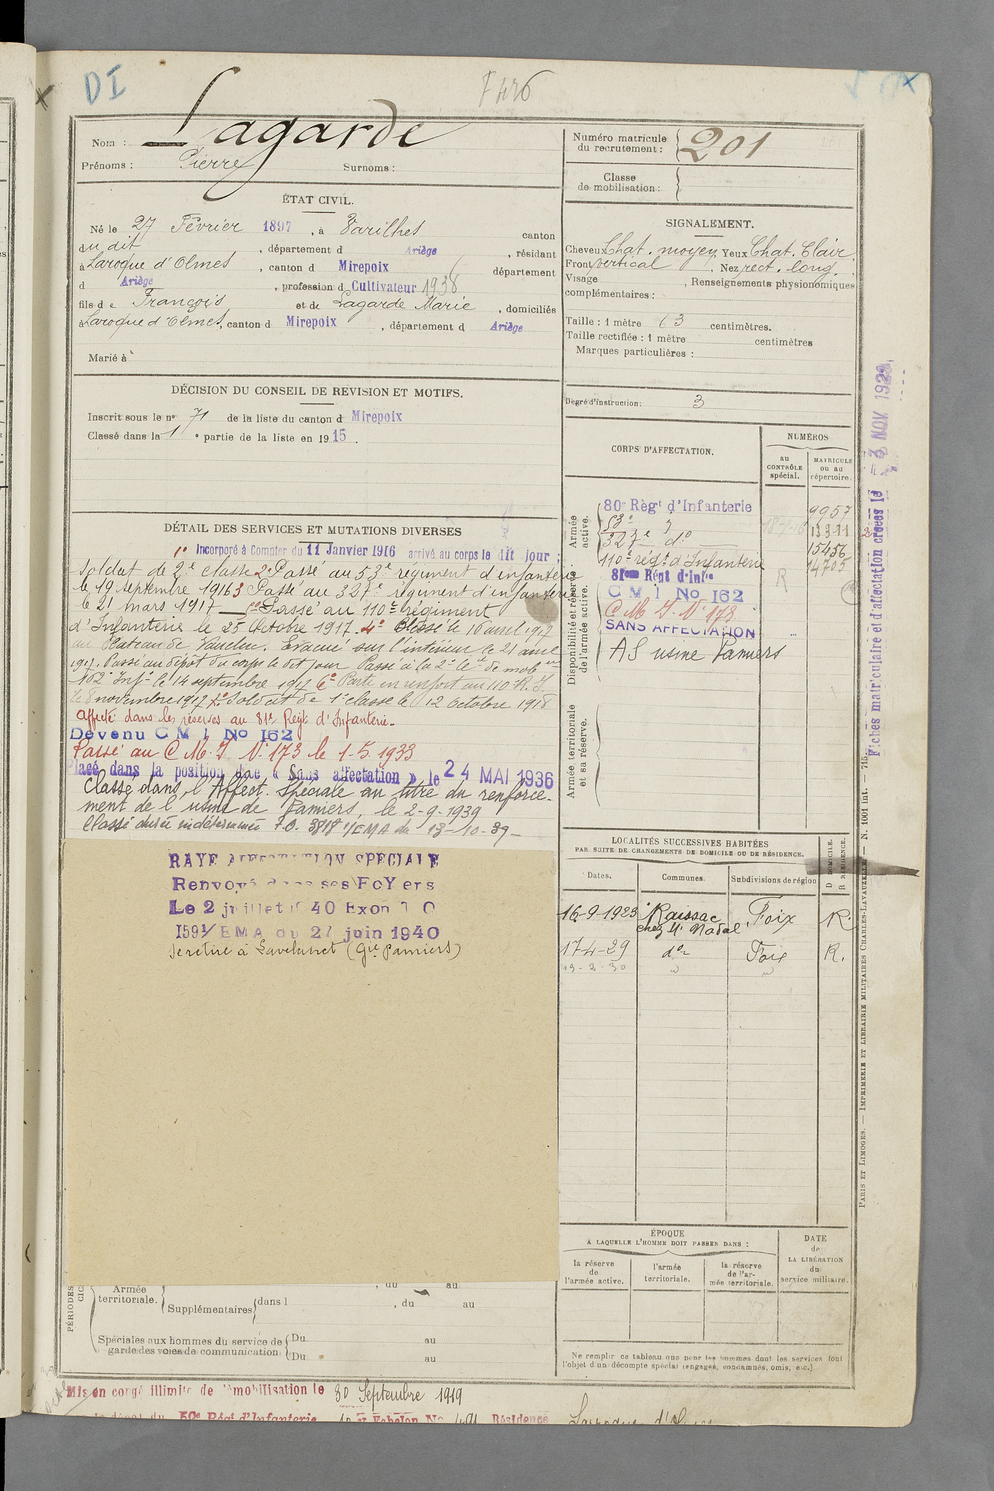 DI
F 426
Nom : Lagarde
Prénoms : Pierre Surnoms :
Numéro matricule du recrutement : 201
Classe de mobilisation :
ÉTAT CIVIL.
Né le 27 Février 1897, à Varilhes canton
du dit, département d Ariège, résidant
à Laroque d'Olmes, canton d Mirepoix département
d Ariège, profession d Cultivateur 1938
fils de François et de Lagarde Marie, domiciliés
à Laroque d'Olmes, canton d Mirepoix, département d Ariège
Marié à
SIGNALEMENT.
Cheveux Chat. moyen Yeux Chat. Clair
Front vertical. Nez rect. long.
Visage , Renseignements physionomiques
complémentaires :
Taille : 1 mètre 63 centimètres.
Taille rectifiée : 1 mètre centimètres
Marques particulières :
Degré d'instruction : 3
DÉCISION DU CONSEIL DE REVISION ET MOTIFS.
Inscrit sous le n° 71 de la liste du canton d Mirepoix
Classé dans la 1 e partie de la liste en 1915.
DÉTAIL DES SERVICES ET MUTATIONS DIVERSES
1° Incorporé à Compter du 11 Janvier 1916 arrivé au corps le dit jour ;
Soldat de 2e classe 2° Passé au 53e régiment d'infanterie
le 19 septembre 1916 3 Passé au 327e régiment d'infanterie
le 21 mars 1917 Passé au 110e régiment
d'Infanterie le 25 Octobre 1917. 4° Blessé le 16 avril 1917
au Plateau de Vauclerc. Evacué sur l'intérieur le 21 avril
1917. Passé au dépôt du corps le dit jour Passé à la
Infie le 14 septembre 1917 6° Parti en renfort au 110 R.I.
le 8 novembre 1917 Soldat de 1e classe le 12 octobre 1918
Affecté dans les réserves au 81e Régt d'Infanterie.
Devenu C M I No 162
Passé au C. M. I. N° 173 le 1-5-1933
Placé dans la position dite « Sans affectation » le 24 MAI 1936
Classé dans l'Affect. Spéciale au titre du renforce-
ment de l'usine de Pamiers, le 2-9-1939
Classé durée indéterminée F.O. 3818 1/EMA du 13-10-39
RAYE AFFECTATION SPECIALE
Renvoyé dans ses FoYers
Le 2 juillet 40 Exon 1 O
159 1/EMA du 27 juin 1940
Se retire à Lavelanet (Gie Pamiers)
CORPS D'AFFECTATION.
NUMÉROS
au CONTRÔLE spécial.
MATRICULE ou au répertoire.
Armée active.
80e Régt d'Infanterie 9957
53e d° 13311
327e d° 15456
110e régt d'Infanterie 14705
Disponibilité et réserve de l'armée active.
81eme Régt d'Infie
C M I No 162 R
C M I N° 173
SANS AFFECTATION
AS usine Pamiers
Armée territoriale et sa réserve.
LOCALITÉS SUCCESSIVES HABITÉES
PAR SUITE DE CHANGEMENTS DE DOMICILE OU DE RÉSIDENCE.
Dates. Communes. Subdivisions de région D DOMICILE. R RÉSIDENCE.
16-9-1923 Raissac Foix R.
chez M. Nadal
17-4-29 d° Foix R.
13-2-30 " "
ÉPOQUE
À LAQUELLE L'HOMME DOIT PASSER DANS :
DATE de LA LIBÉRATION du service militaire.
la réserve de l'armée active.
l'armée territoriale.
la réserve de l'armée territoriale.
Ne remplir ce tableau que pour les hommes dont les services font
l'objet d'un décompte spécial (engagés, condamnés, omis, etc.).
PÉRIODES
Armée territoriale.
, du au
Supplémentaires dans l , du au
Spéciales aux hommes du service de garde des voies de communication.
Du au
Du au
Mis en congé illimité de démobilisation le 30 Septembre 1919
Fiches matriculaire et d'affectation créées le 3 NOV 1923
PARIS ET LIMOGES. — IMPRIMERIE ET LIBRAIRIE MILITAIRES CHARLES-LAVAUZELLE. — N. 1001 int.